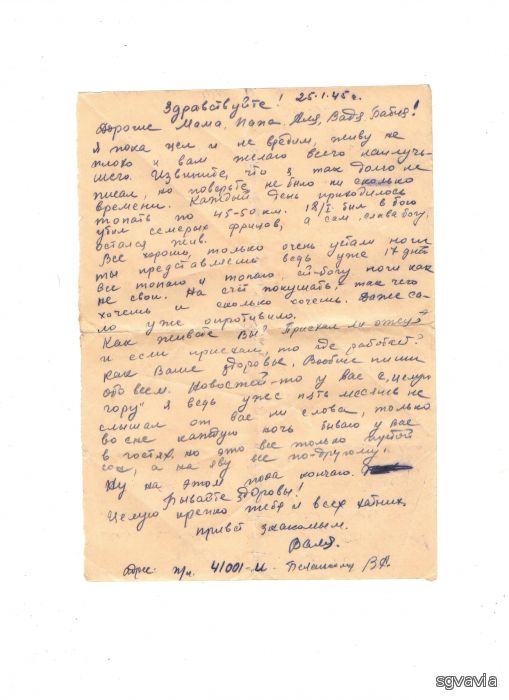 Здравствуйте! 25.1.45 г.
Дорогие Мама, Папа, Аля, Вадя, Бабця!
Я пока жел и не вредим, живу не
плохо и вам желаю всего наилуч-
шего. Извините, что я так долго не
писал, но поверьте не было ни сколько
времени. Каждый день приходилось
топать по 45-50 км. 18/I был в бою
убил семерых фрицов, а сам слава богу,
остался жив.
Все хорошо, только очень устали ноги
ты представляешь ведь уже 17 дней
все топаю и топаю, ей-богу ноги как
не свои. На счет покушать, так чего
хочешь и сколько хочешь. Даже са-
ло уже опротивило.
Как живете Вы? Приехал ли отец?
и если приехал, то где работает?
Как Ваше здоровье, Вообще пиши
обо всем. Новостей-то у вас с "целую
гору" я ведь уже пять месяцев не
слышал от вас ни слова, только
во сне каждую ночь бываю у вас
в гостях, но это все только пустой
сон, а на яву все по-другому.
Ну на этом пока кончаю.
Бывайте здоровы!
Целую крепко тебя и всех хатник,
привет знакомым.
Валя.
Адрес: п/п. 41001-И. В.А.
sgvavia